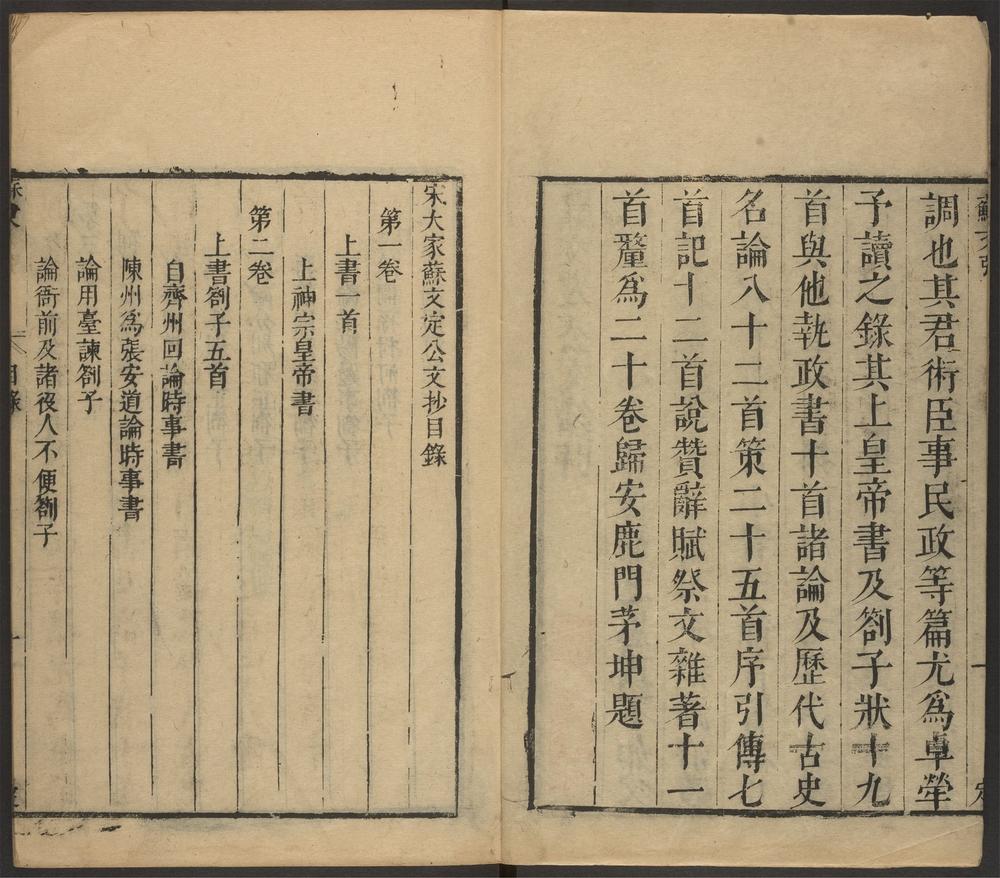 調也其君術臣事民政等篇尤為卓犖
予讀之錄其上皇帝書及劄子狀十九
首與他執政書十首諸論及歷代古史
名論八十二首策二十五首序引傳七
首記十二首說贊辭賦祭文雜著十一
首釐為二十卷歸安鹿門茅坤題
宋大家蘇文定公文抄目錄
第一卷
上書一首
上神宗皇帝書
第二卷
上書劄子五首
自齊州回論時事書
陳州為張安道論時事書
論用臺諫劄子
論衙前及諸役人不便劄子
目錄